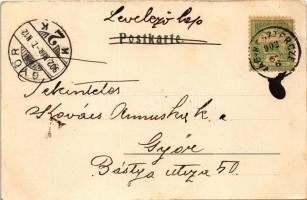 Levelező lap
Postkarte.
GYŐR
902 MÁR. 7. N12
902
Tekintetes
Kovács Annuska k. a
Győr
Bástya utcza 50.